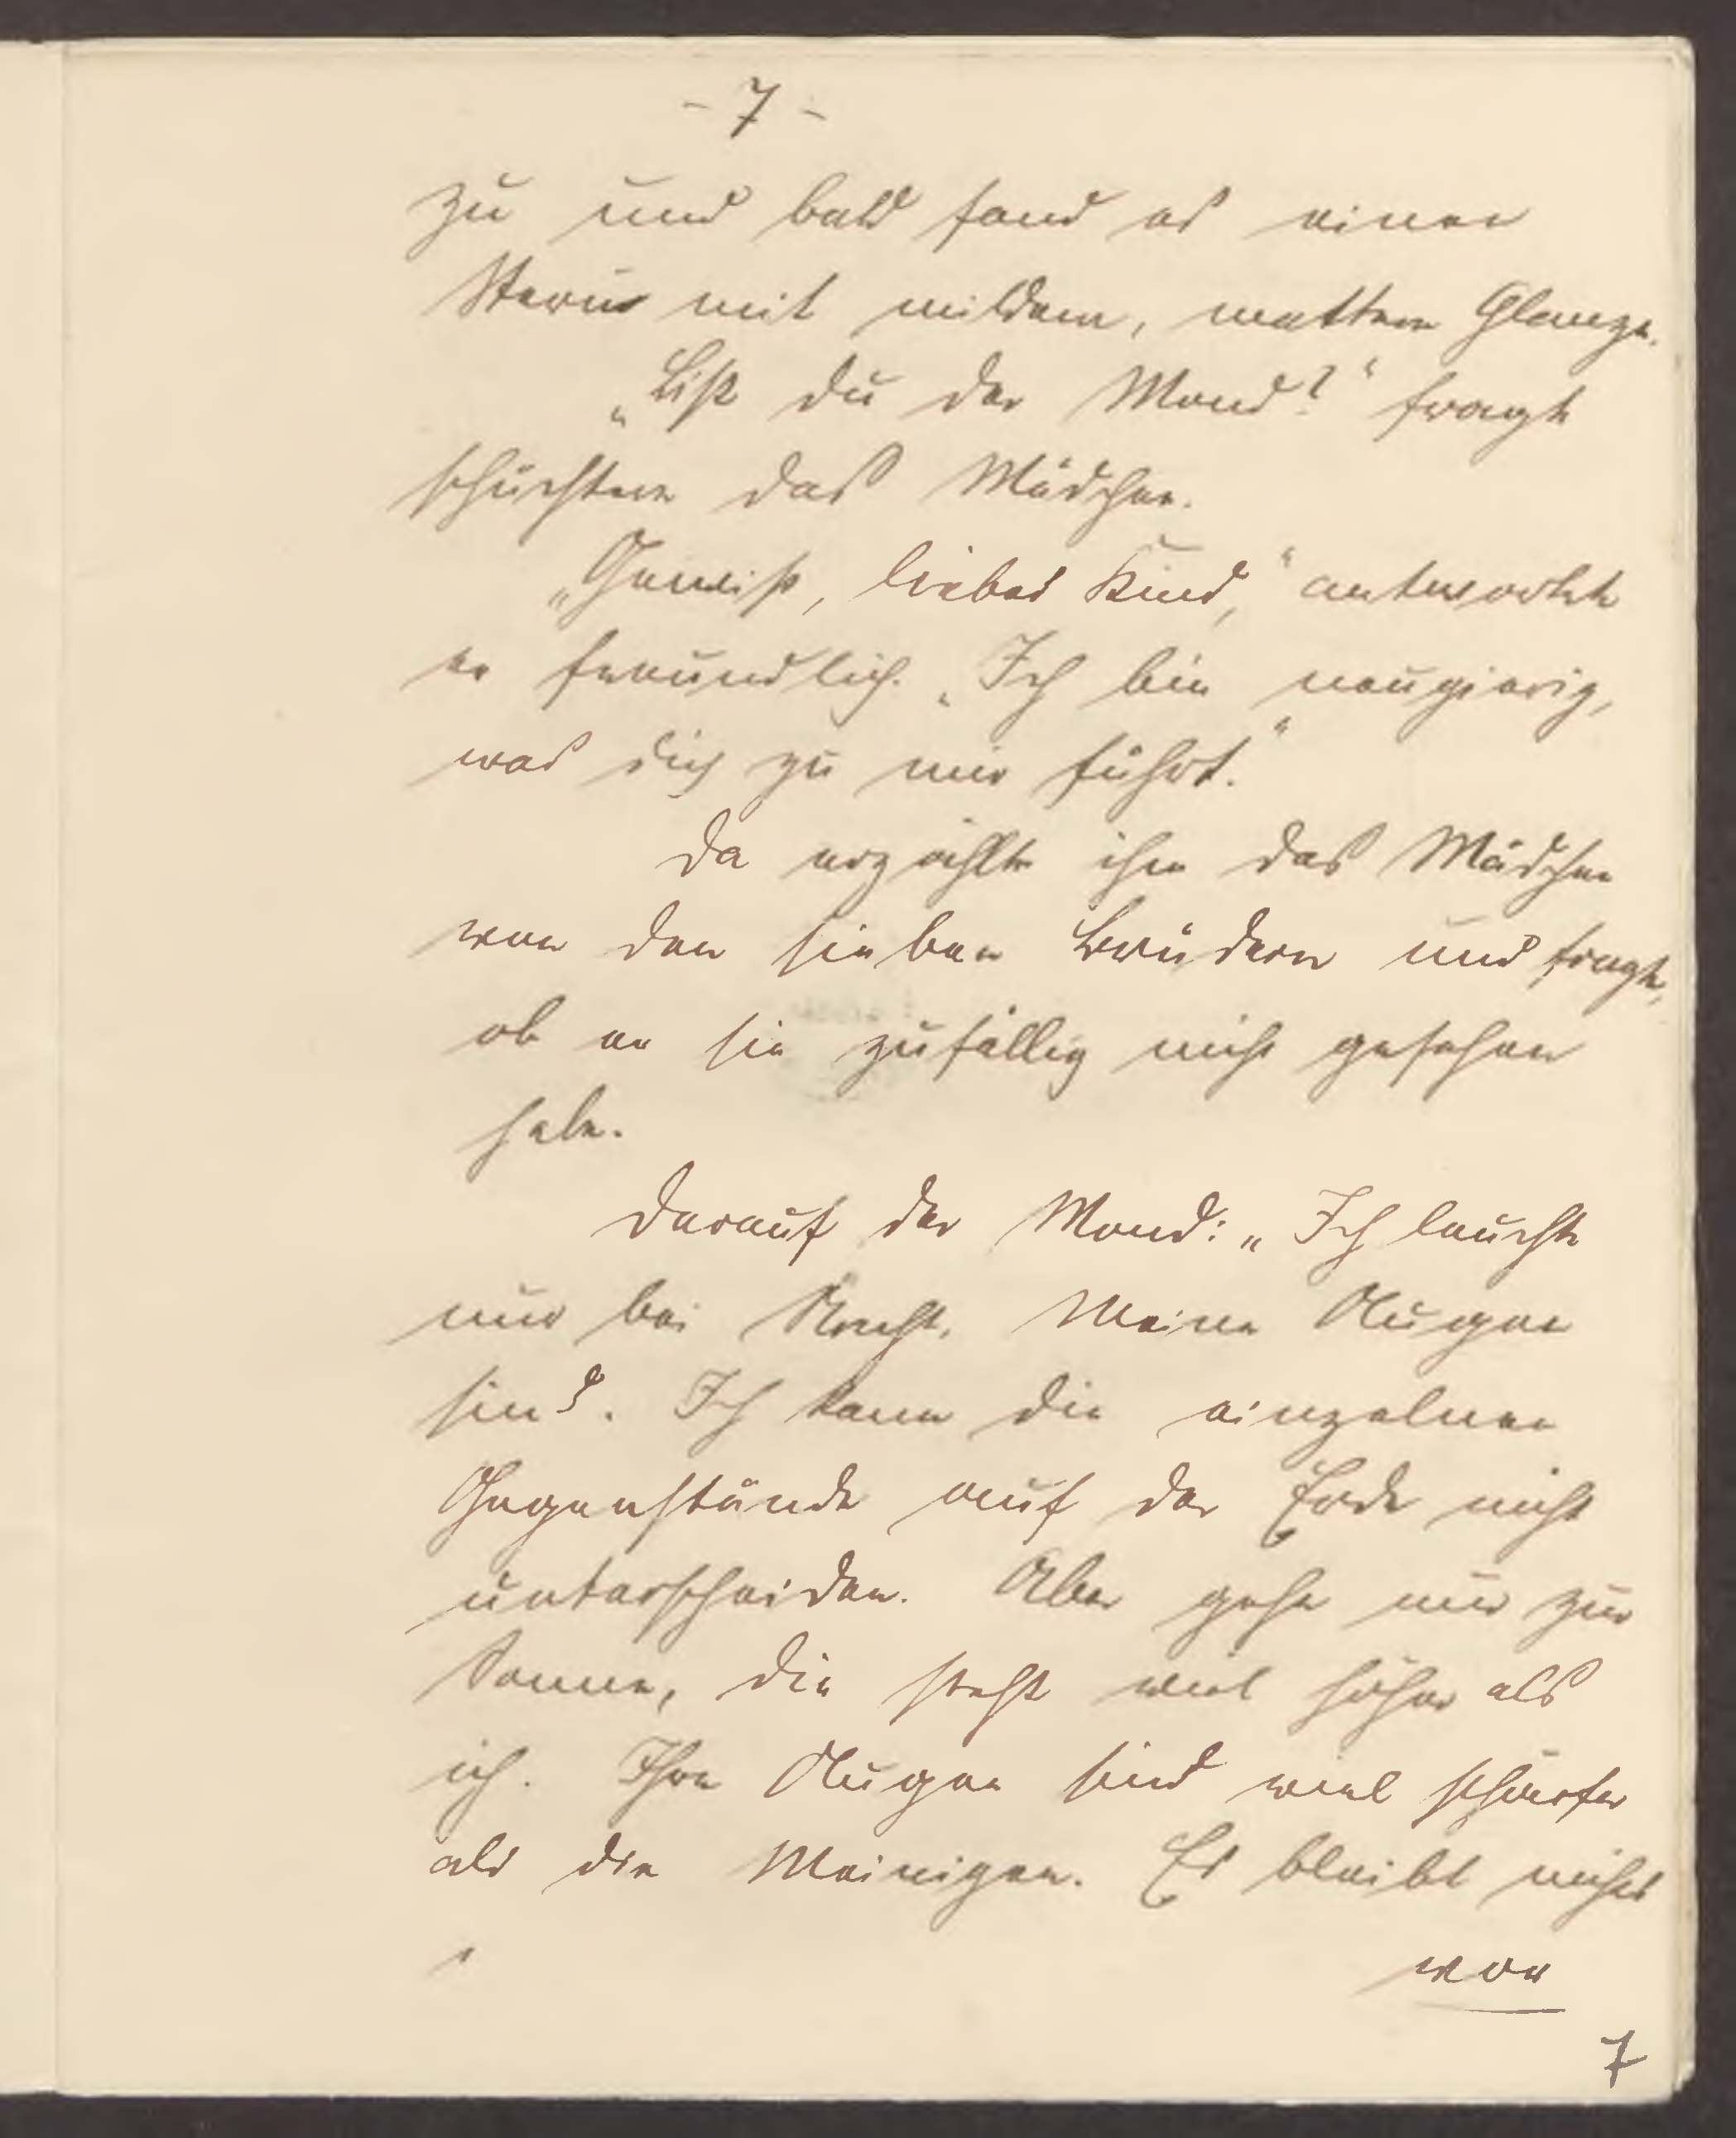 - 7 -
zu und bald fand es einen
Stern mit mildem, mattem Glanze.
„Bist du der Mond?“ fragte
schüchtern das Mädchen.
„Gewiß, liebes Kind,“ antwortete
er freundlich. „Ich bin neugierig,
was dich zu mir führt.“
Da erzählte ihm das Mädchen
von den sieben Brüdern und fragte,
ob er sie zufällig nicht gesehen
habe.
Darauf der Mond: „Ich leuchte
nur bei Nacht. Meine Augen
sind. Ich kann die einzelnen
Gegenstände auf der Erde nicht
unterscheiden. Aber gehe nur zur
Sonne, die steht viel höher als
ich. Ihre Augen sind viel schärfer
als die Meinigen. Es bleibt nichts
vor
7